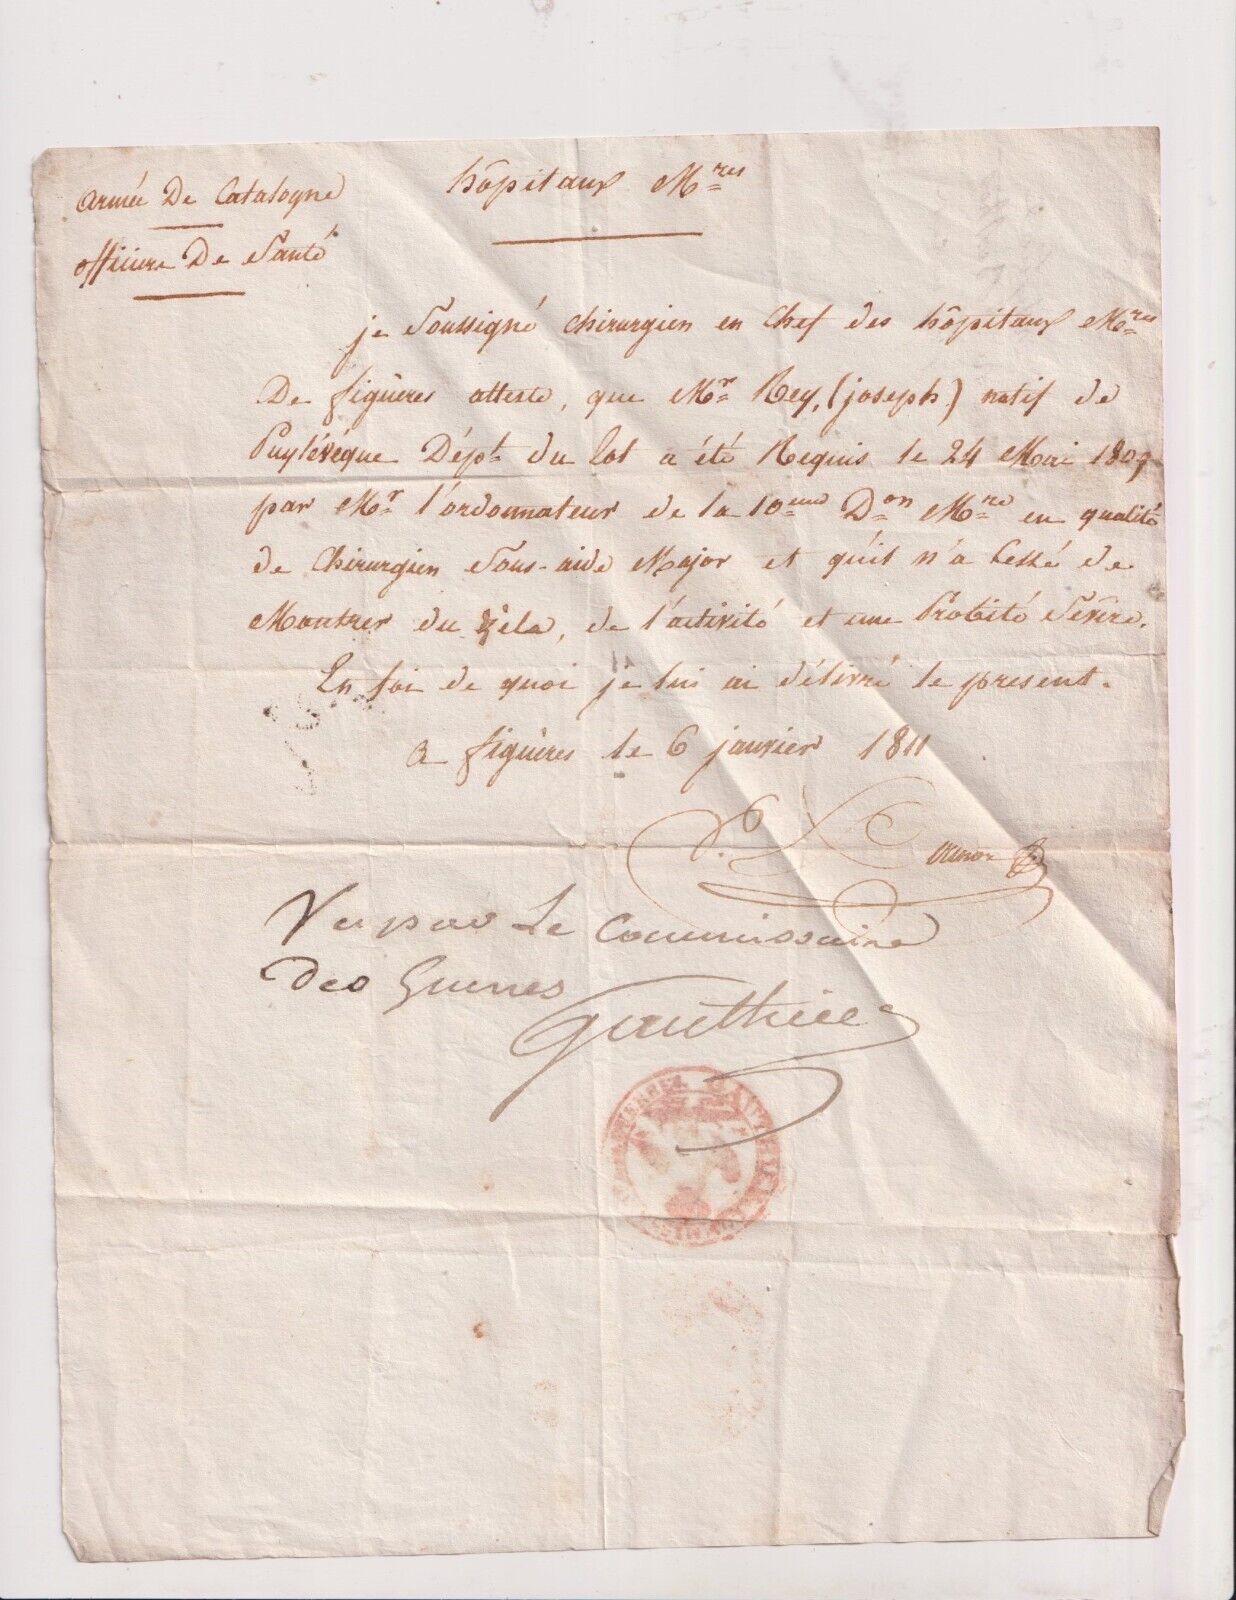 Armée De Catalogne
hôpitaux M.res
officiers De Santé
je Soussigné Chirurgien en Chef des hôpitaux M.res
De figuères atteste, que M.r Rey, (joseph) natif de
Puylévéque Dép.t du Lot a été Requis le 24 Mai 1809
par M.r l'ordonnateur de la 10.eme D.on M.re en qualité
de Chirurgien Sous-aide Major et qu'il n'a Cessé de
Montrer du zèle, de l'activité et une Probité Sévère.
En foi de quoi je lui ai délivré le présent.
a figuères le 6 janvier 1811
Vu par Le Commissaire
Des Guerres
Gauthier